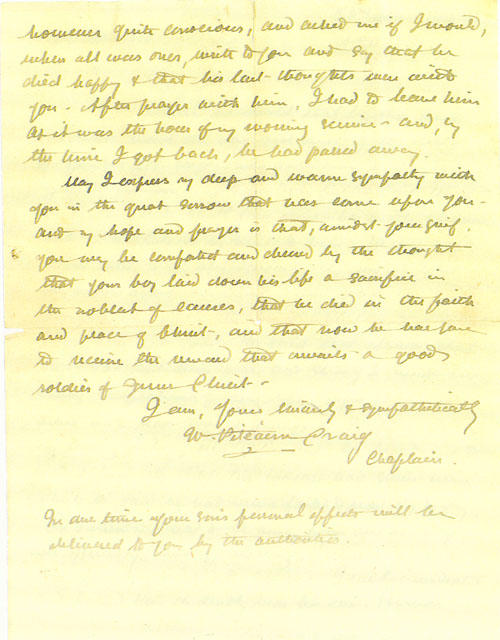 however quite conscious, and asked me if I would,
when all was over, write to you and say that he
died happy & that his last thoughts were with
you - After prayer with him, I had to leave him
as it was the hour of my morning service - and, by
the time I got back, he had passed away.
May I express my deep and warm sympathy with
you in the great sorrow that has come upon you -
and my hope and prayer is that, amidst your grief,
you may be comforted and cheered by the thought
that your boy laid down his life a sacrifice in
the noblest of causes, that he died in the faith
and peace of Christ, and that now he has gone
to receive the reward that awaits a good
soldier of Jesus Christ -
I am, Yours sincerely & sympathetically
W Pitcairn Craig
Chaplain.
In due time your son's personal effects will be
delivered to you by the authorities.